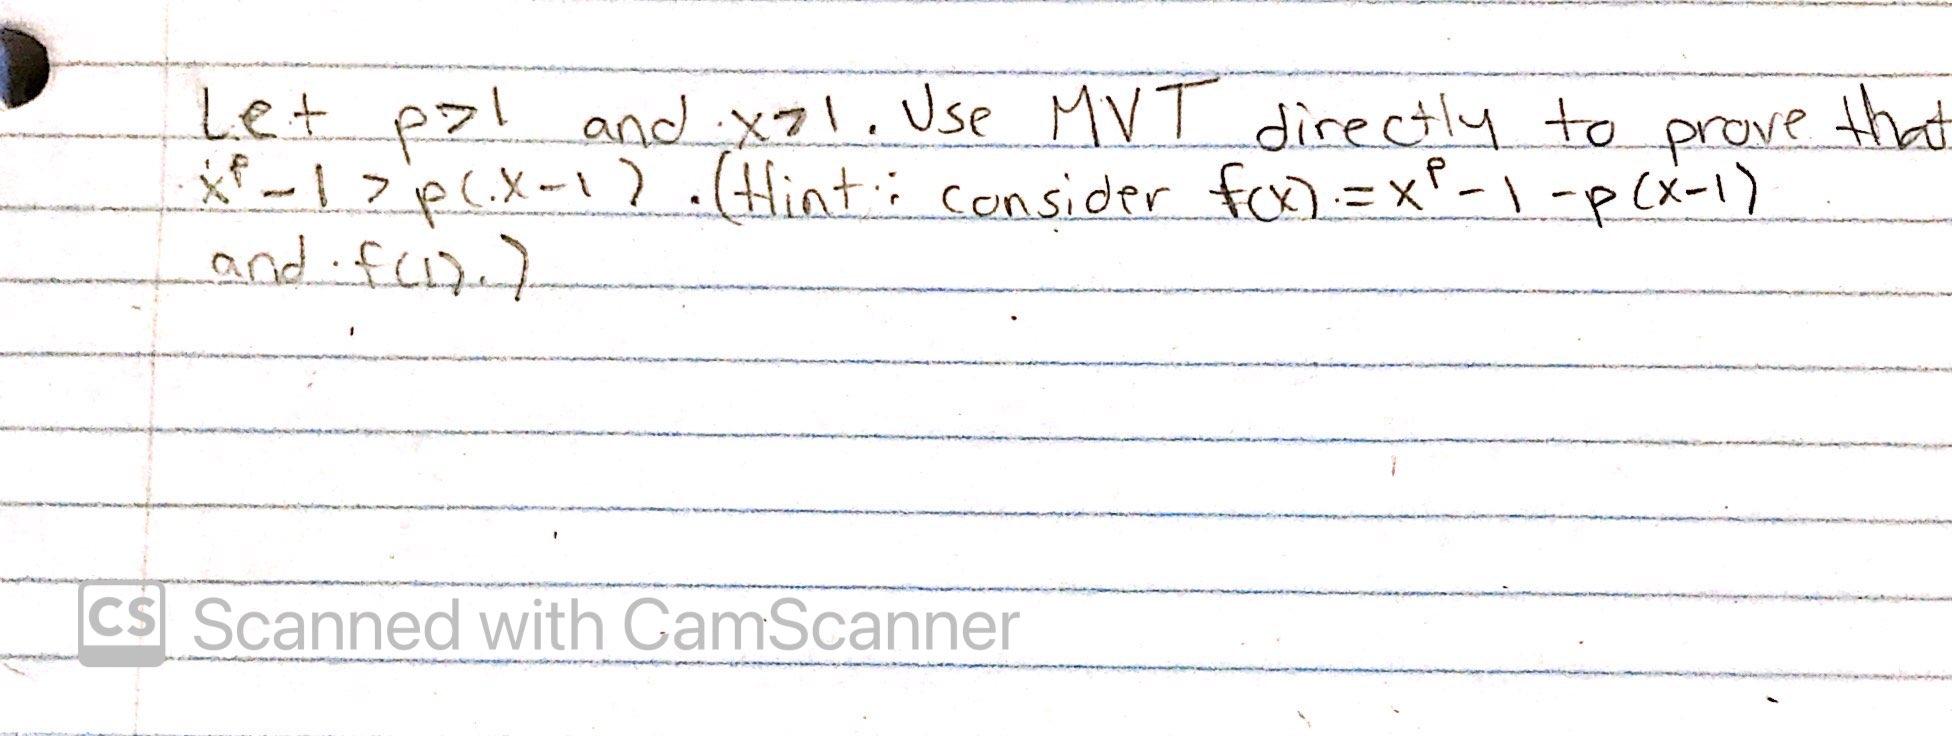 Let p>1 and x>1. Use MVT directly to prove that
x^p-1 > p(x-1). (Hint: consider f(x)=x^p-1-p(x-1)
and f(1).)
CS Scanned with CamScanner